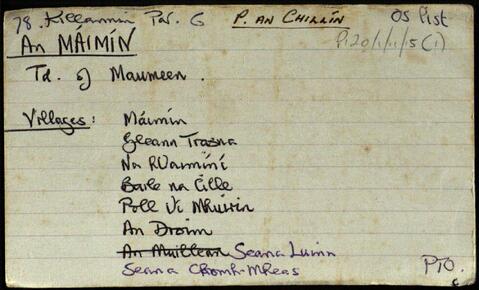 78. Killannin Par. G P. AN CHILLÍN OS List
An MÁIMÍN P120/1/11/15(1)
Td. of Maumeen.
Villages: Máimín
Gleann Trasna
Na RUaimíní
Baile na Cille
Poll Uí Mhuirin
An Droim
An Muilleann Seana Luimn
Seana Chomh-Mheas
PTO.